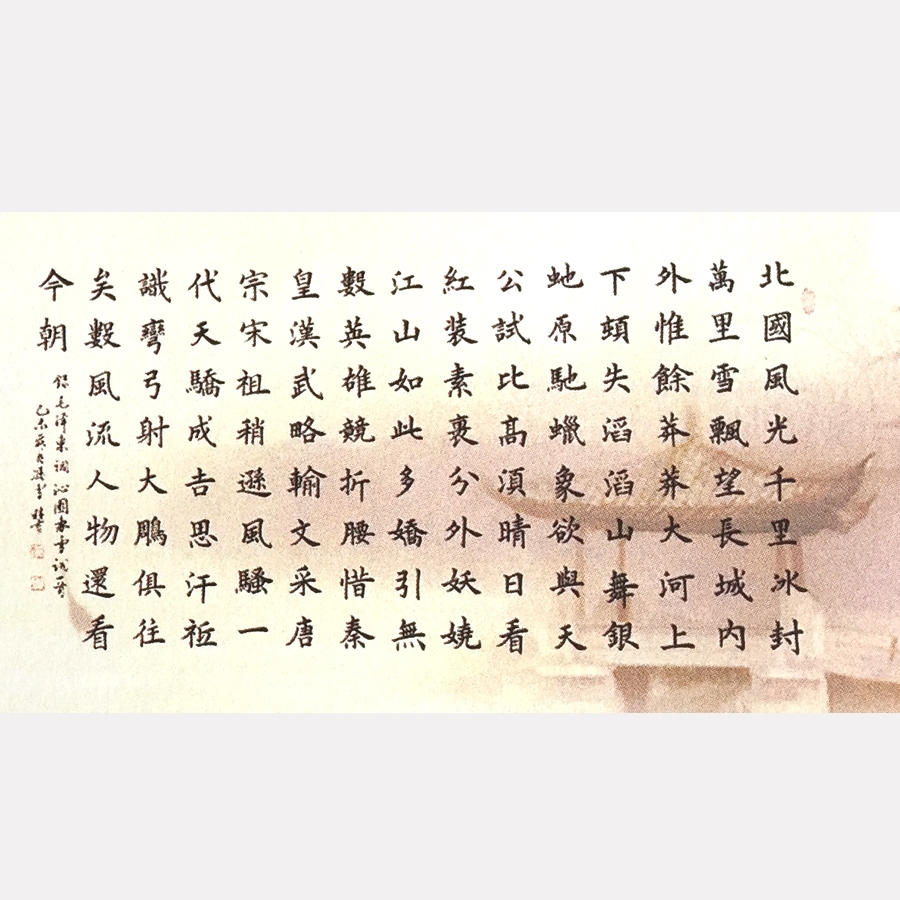 北國風光千里冰封
萬里雪飄望長城内
外惟餘莽莽大河上
下頓失滔滔山舞銀
虵原馳蠟象欲與天
公試比髙湏晴日看
紅装素裹分外妖嬈
江山如此多嬌引無
數英雄競折腰惜秦
皇漢武略輸文采唐
宗宋祖稍遜風騷一
代天驕成吉思汗祗
識彎弓射大鵰俱往
矣數風流人物還看
今朝
錄毛澤東詞沁園春雪詞一首
乙未